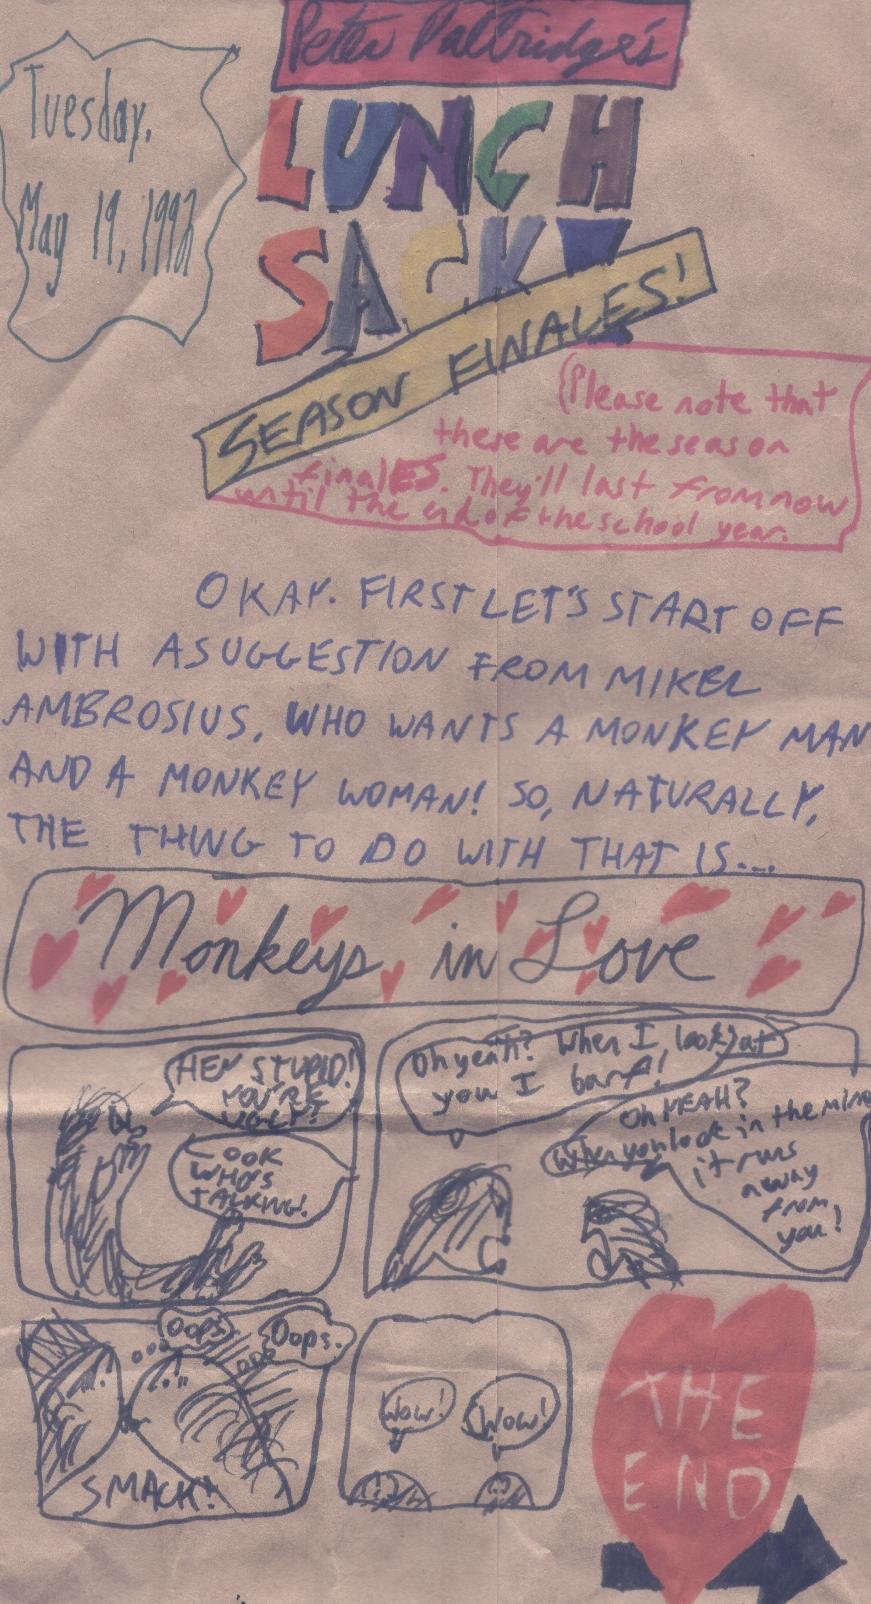 Peter Paltridge's
LUNCH
SACK!
Tuesday,
May 19, 1992
SEASON FINALES!
(Please note that
these are the season
finalES. They'll last from now
until the end of the school year.
OKAY. FIRST LET'S START OFF
WITH A SUGGESTION FROM MIKEL
AMBROSIUS, WHO WANTS A MONKEY MAN
AND A MONKEY WOMAN! SO, NATURALLY,
THE THING TO DO WITH THAT IS...
Monkeys in Love
HEY STUPID!
YOU'RE
UGLY!
LOOK
WHO'S
TALKING!
Oh yeah? When I look at
you I barf!
Oh YEAH?
When you look in the mirror
it runs
away
from
you!
Oops.
Oops.
SMACK!
Wow!
Wow!
THE
END